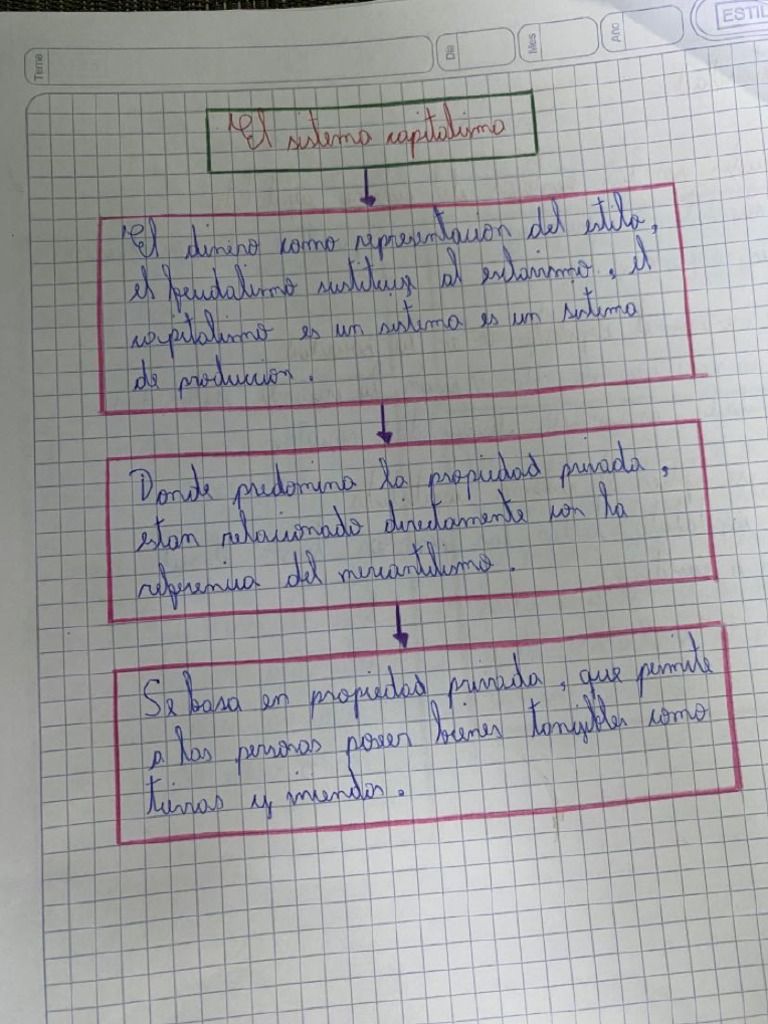 Tema
Dia
Mes
Año
ESTIL
El sistema capitalismo
El dinero como representacion del estilo,
el feudalismo sustituye al eslavismo, el
capitalismo es un sistema es un sistema
de producion.
Donde predomina la propiedad privada,
estan relacionado directamente con la
referencia del mercantilismo.
Se basa en propiedad privada, que permite
a las personas poseer bienes tangibles como
tierras y